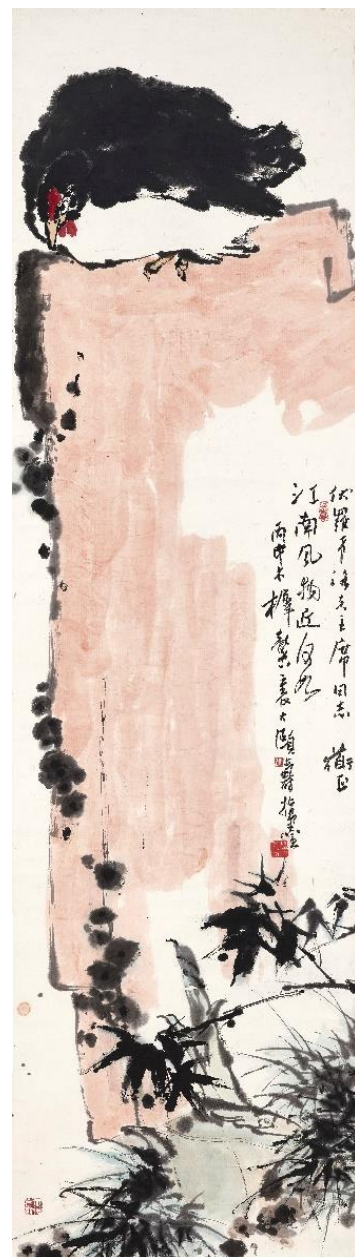 伏羅希洛夫主席同志 正
江南風物近何如
丙申木樨芬裏大頤壽指墨